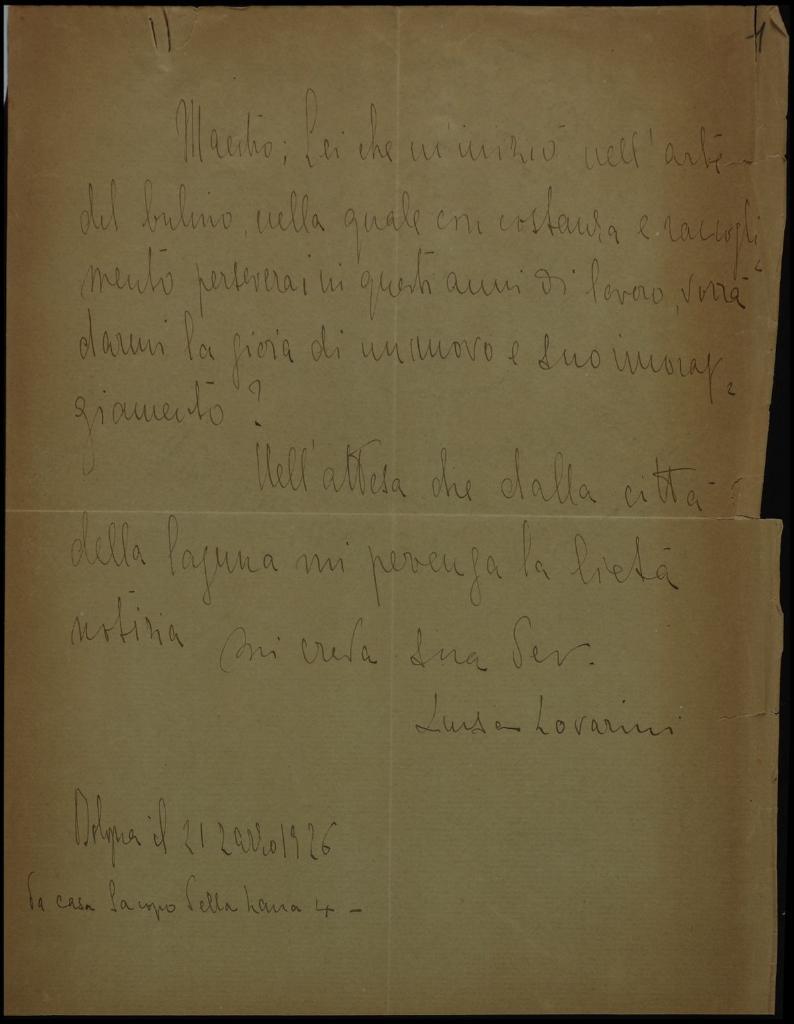 Maestro; Lei che m'iniziò nell'arte
del bulino, nella quale con costanza e raccogli-
mento perseverai in questi anni di lavoro, vorrà
darmi la gioia di un nuovo e suo incorag-
giamento?
Nell'attesa che dalla città
della laguna mi pervenga la lieta
notizia mi creda sua dev.
Luisa Lovarini
Bologna il 21 Marzo 1926
da casa Jacopo della Lana 4 –